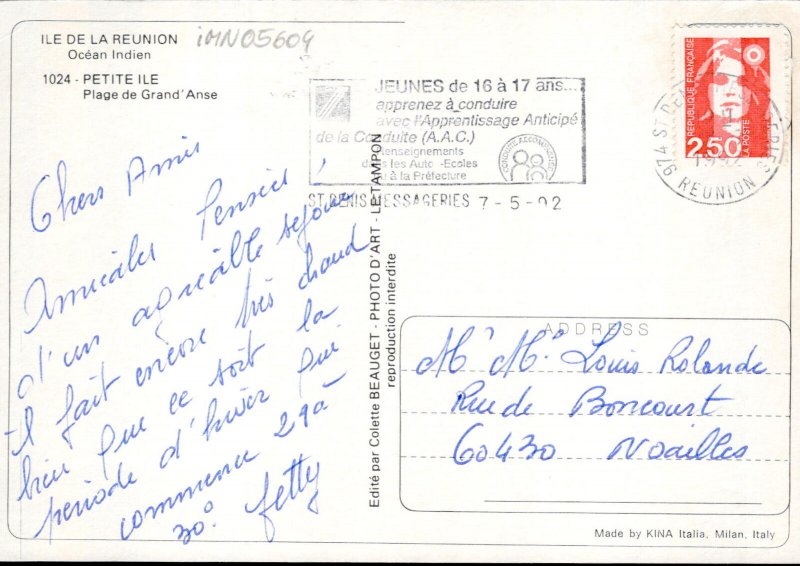 ILE DE LA REUNION
Océan Indien
iMN05604
1024 - PETITE ILE
Plage de Grand'Anse
JEUNES de 16 à 17 ans...
apprenez à conduire
avec l'Apprentissage Anticipé
de la Conduite (A.A.C.)
Renseignements
dans les Auto-Ecoles
ou à la Préfecture
CONDUITE ACCOMPAGNEE
ST DENIS MESSAGERIES 7-5-92
REPUBLIQUE FRANÇAISE
LA POSTE
2,50
974 ST DENIS
REUNION
Chers Amis
Amicales Pensées,
d'un agréable séjour
il fait encore très chaud
bien que ce soit la
période d'hiver qui
commence 29 à
30°. Jetty
Edité par Colette BEAUGET - PHOTO D'ART - LE TAMPON
reproduction interdite
ADDRESS
Mr Me Louis Rolande
Rue de Boncourt
60430 Noailles
Made by KINA Italia, Milan, Italy